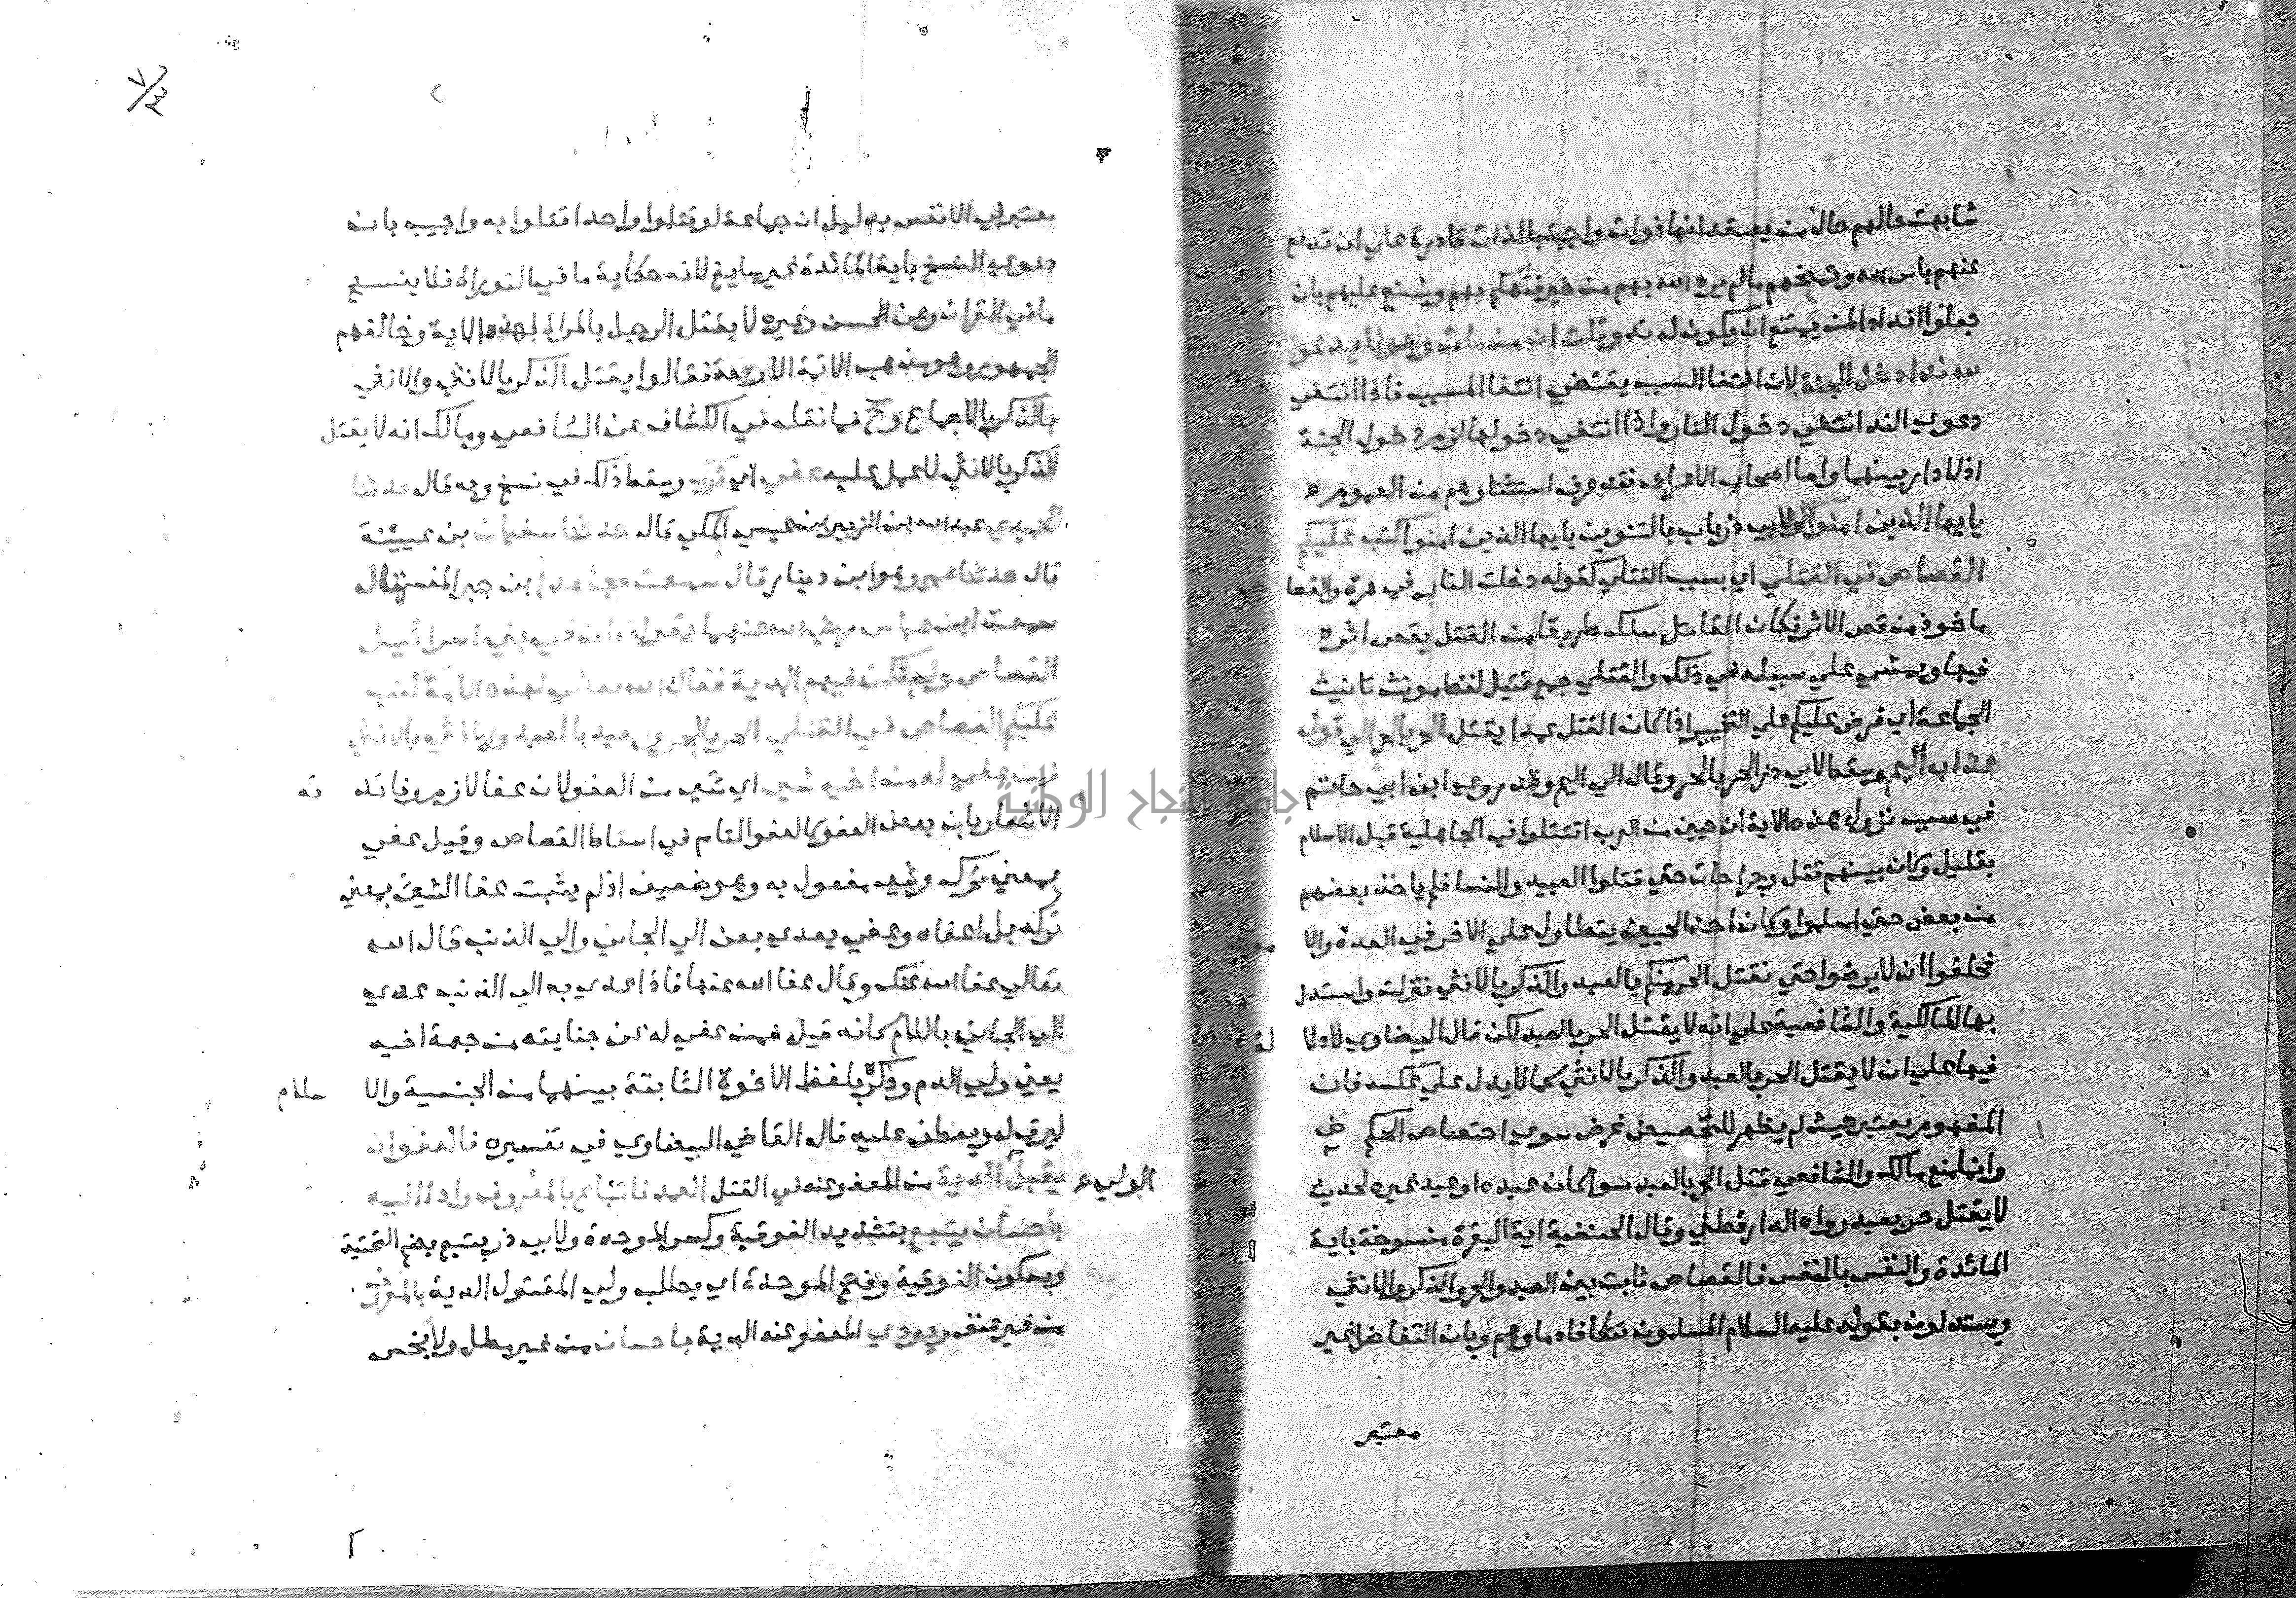 شابهت حالهم حال من يعتقد انها ذوات واجبة بالذات قادرة علي ان تدفع
عنهم باس الله وتمنحهم مالم يرد الله بهم من خير فتهكم بهم وشنع عليهم بان
جعلوا اندادا لمن يمتنع ان يكون له ند وقلت انا من مات وهو لا يدعو
لله ندا دخل الجنة لان انتفا السبب يقتضي انتفا المسبب فاذا انتفي
دعوي الند انتفي دخول النار واذا انتفي دخولها لزم دخول الجنة
اذ لا دار بينهما واما اصحاب الاعراف فقد عرف استثناوهم من العموم
يايها الذين امنوا ولابي ذر باب بالتنوين يايها الذين امنوا كتب عليكم
القصاص في القتلي اي بسبب القتلي كقوله دخلت النار في هرة والقصا ص
ماخوذ من قص الاثر فكان القاتل سلك طريقا من القتل يقص اثره
فيها ويمشي علي سبيله في ذلك والقتلي جمع قتيل لفظ مونث تانيث
الجماعة اي فرض عليكم علي التخيير اذا كان القتل عمدا يقتل الحر بالحر الي قوله
عذاب اليم وسقط لابي ذر الحر بالحر وقال الي اليم وقد روي ابن ابي حاتم
في سبب نزول هذه الاية ان حيين من العرب اقتتلوا في الجاهلية قبل الاسلام
بقليل وكان بينهم قتل وجراحات حتي قتلوا العبيد والنسا فلم ياخذ بعضهم
من بعض حتي اسلموا وكان احد الحيين يتطاول علي الاخر في العدة والا موال
فحلفوا ان لا يرضوا حتي نقتل الحر منكم بالعبد والذكر بالانثي فنزلت واستدل
بها المالكية والشافعية علي انه لا يقتل الحر بالعبد لكن قال البيضاوي لا دلا لة
فيها علي ان لا يقتل الحر بالعبد والذكر بالانثي كما لا يدل علي عكسه فان
المفهوم يعتبر حيث لم يظهر للتخصيص غرض سوي اختصاص الحكم
وانما منع مالك والشافعي قتل الحر بالعبد سوا كان عبده او عبد غيره لحديث
لا يقتل حر بعبد رواه الدارقطني وقال الحنفية اية البقرة منسوخة باية
المائدة والنفس بالنفس فالقصاص ثابت بين العبد والحر والذكر والانثي
ويستدلون بقوله عليه السلام المسلمون تتكافا دماوهم وبان التفاضل غير
معتبر
معتبر في الانفس بدليل ان جماعة لو قتلوا واحدا قتلوا به واجيب بان
دعوي النسخ باية المائدة غير سايغ لانه حكاية ما في التوراة فلا ينسخ
ما في القران وعن الحسن وغيره لا يقتل الرجل بالمراة لهذه الاية وخالفهم
الجمهور وهو مذهب الائمة الاربعة فقالوا يقتل الذكر بالانثي والانثي
بالذكر بالاجماع وح فما نقله في الكشاف عن الشافعي ومالك انه لا يقتل
الذكر بالانثي لا عمل عليه عفي اي ترك وسقط ذلك في نسخ وبه قال حدثنا
الحميدي عبد الله بن الزبير بن عيسي المكي قال حدثنا سفيان بن عيينة
قال حدثنا عمرو هو ابن دينار قال سمعت مجاهدا ابن جبر المفسر قال
سمعت ابن عباس رضي الله عنهما يقول كان في بني اسرائيل
القصاص ولم تكن فيهم الدية فقال الله تعالي لهذه الامة كتب
عليكم القصاص في القتلي الحر بالحر والعبد بالعبد والانثي بالانثي
فمن عفي له من اخيه شي اي شي من العفو لان عفا لازم وفائد ته
الاشعار بان بعض العفو كالعفو التام في اسقاط القصاص وقيل عفي
بمعني ترك وشي مفعول به وهو ضعيف اذ لم يثبت عفا الشي بمعني
تركه بل اعفاه وعفي يعدي بعن الي الجاني والي الذنب قال الله
تعالي عفا الله عنك وقال عفا الله عنها فاذا عدي به الي الذنب عدي
الي الجاني باللام كانه قيل فمن عفي له عن جنايته من جهة اخيه
يعني ولي الدم وذكره بلفظ الاخوة الثابتة بينهما من الجنسية والا سلام
ليرق له ويعطف عليه قال القاضي البيضاوي في تفسيره فالعفو ان
يقبل الولي الدية من المعفو عنه في القتل العمد فاتباع بالمعروف واداء اليه
باحسان يتبع بتشديد الفوقية وكسر الموحدة ولابي ذر يتبع بفتح التحتية
وسكون الفوقية وفتح الموحدة اي يطلب ولي المقتول الدية بالمعروف
من غير عنف ويودي المعفو عنه الدية باحسان من غير مطل ولا بخس
جامعة النجاح الوطنية